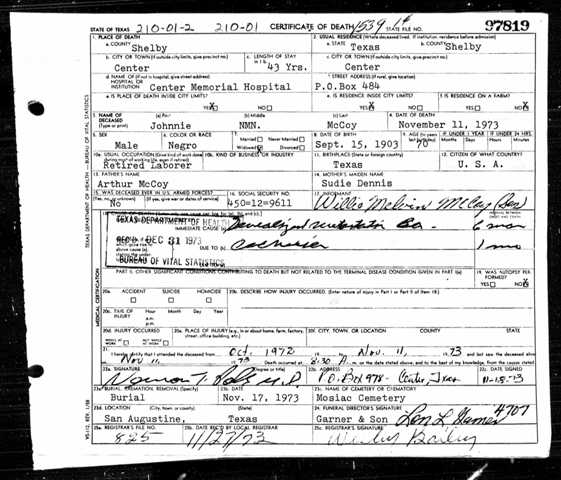 STATE OF TEXAS 210-01-2 210-01 CERTIFICATE OF DEATH 1539 STATE FILE NO. 97819
1. PLACE OF DEATH 2. USUAL RESIDENCE (Where deceased lived. If institution, residence before admission)
a. COUNTY Shelby a. STATE Texas b. COUNTY Shelby
b. CITY OR TOWN (If outside city limits, give precinct no.) c. LENGTH OF STAY c. CITY OR TOWN (If outside city limits, give precinct no.)
Center 43 Yrs. Center
d. NAME OF (If not in hospital, give street address) HOSPITAL OR INSTITUTION d. STREET ADDRESS (If rural, give location)
Center Memorial Hospital P.O.Box 484
e. IS PLACE OF DEATH INSIDE CITY LIMITS? e. IS RESIDENCE INSIDE CITY LIMITS? f. IS RESIDENCE ON A FARM?
YES X NO YES X NO YES NO X
3. NAME OF DECEASED (Type or print) (a) First (b) Middle (c) Last 4. DATE OF DEATH
Johnnie NMN. McCoy November 11, 1973
5. SEX 6. RACE 7. Married Never Married 8. DATE OF BIRTH 9. AGE IF UNDER 1 YEAR IF UNDER 24 HRS.
Male Negro Widowed Divorced Sept. 15, 1903 70 Months Days Hours Min.
10a. USUAL OCCUPATION (Give kind of work done during most of working life, even if retired) 10b. KIND OF BUSINESS OR INDUSTRY 11. BIRTHPLACE (State or foreign country) 12. CITIZEN OF WHAT COUNTRY?
Retired Laborer Texas U. S. A.
13. FATHER'S NAME 14. MOTHER'S MAIDEN NAME
Arthur McCoy Sudie Dennis
15. WAS DECEASED EVER IN U.S. ARMED FORCES? 16. SOCIAL SECURITY NO. 17. INFORMANT
No (If yes, give war or dates of service) 450=12=9611 Willie Melvin McCoy (Son)
TEXAS DEPARTMENT OF HEALTH
IMMEDIATE CAUSE (a) 6 mon
REC'D DEC 31 1973 DUE TO 1 mo
BUREAU OF VITAL STATISTICS
PART II. OTHER SIGNIFICANT CONDITIONS CONTRIBUTING TO DEATH BUT NOT RELATED TO THE TERMINAL DISEASE CONDITION GIVEN IN PART I(a) 19. WAS AUTOPSY PERFORMED?
YES NO X
20a. ACCIDENT SUICIDE HOMICIDE 20b. DESCRIBE HOW INJURY OCCURRED. (Enter nature of injury in Part I or Part II of item 18)
20c. TIME OF INJURY Hour Month Day Year
a.m.
p.m.
20d. INJURY OCCURRED 20e. PLACE OF INJURY (e.g., in or about home, farm, factory, street, office building, etc.) 20f. CITY, TOWN OR LOCATION COUNTY STATE
21. I hereby certify that I attended the deceased from Oct. 1972 Nov. 11, 1973 and last saw the deceased alive
Nov 11, 1973 Death occurred at 8:30 A.m. on the date stated above, and to the best of my knowledge, from the causes stated
22a. SIGNATURE 22b. ADDRESS 22c. DATE SIGNED
P.O. Box 978 - Center, Texas
23a. BURIAL, CREMATION, REMOVAL (Specify) 23b. DATE 23c. NAME OF CEMETERY OR CREMATORY
Burial Nov. 17, 1973 Mosiac Cemetery
23d. LOCATION (City, town, or county) (State) 24. FUNERAL DIRECTOR'S SIGNATURE
San Augustine, Texas Garner & Son Len L Garner 4707
25a. REGISTRAR'S FILE NO. 25b. DATE REC'D BY LOCAL REGISTRAR 25c. REGISTRAR'S SIGNATURE
825 11/27/73
TEXAS DEPARTMENT OF HEALTH — BUREAU OF VITAL STATISTICS
MEDICAL CERTIFICATION